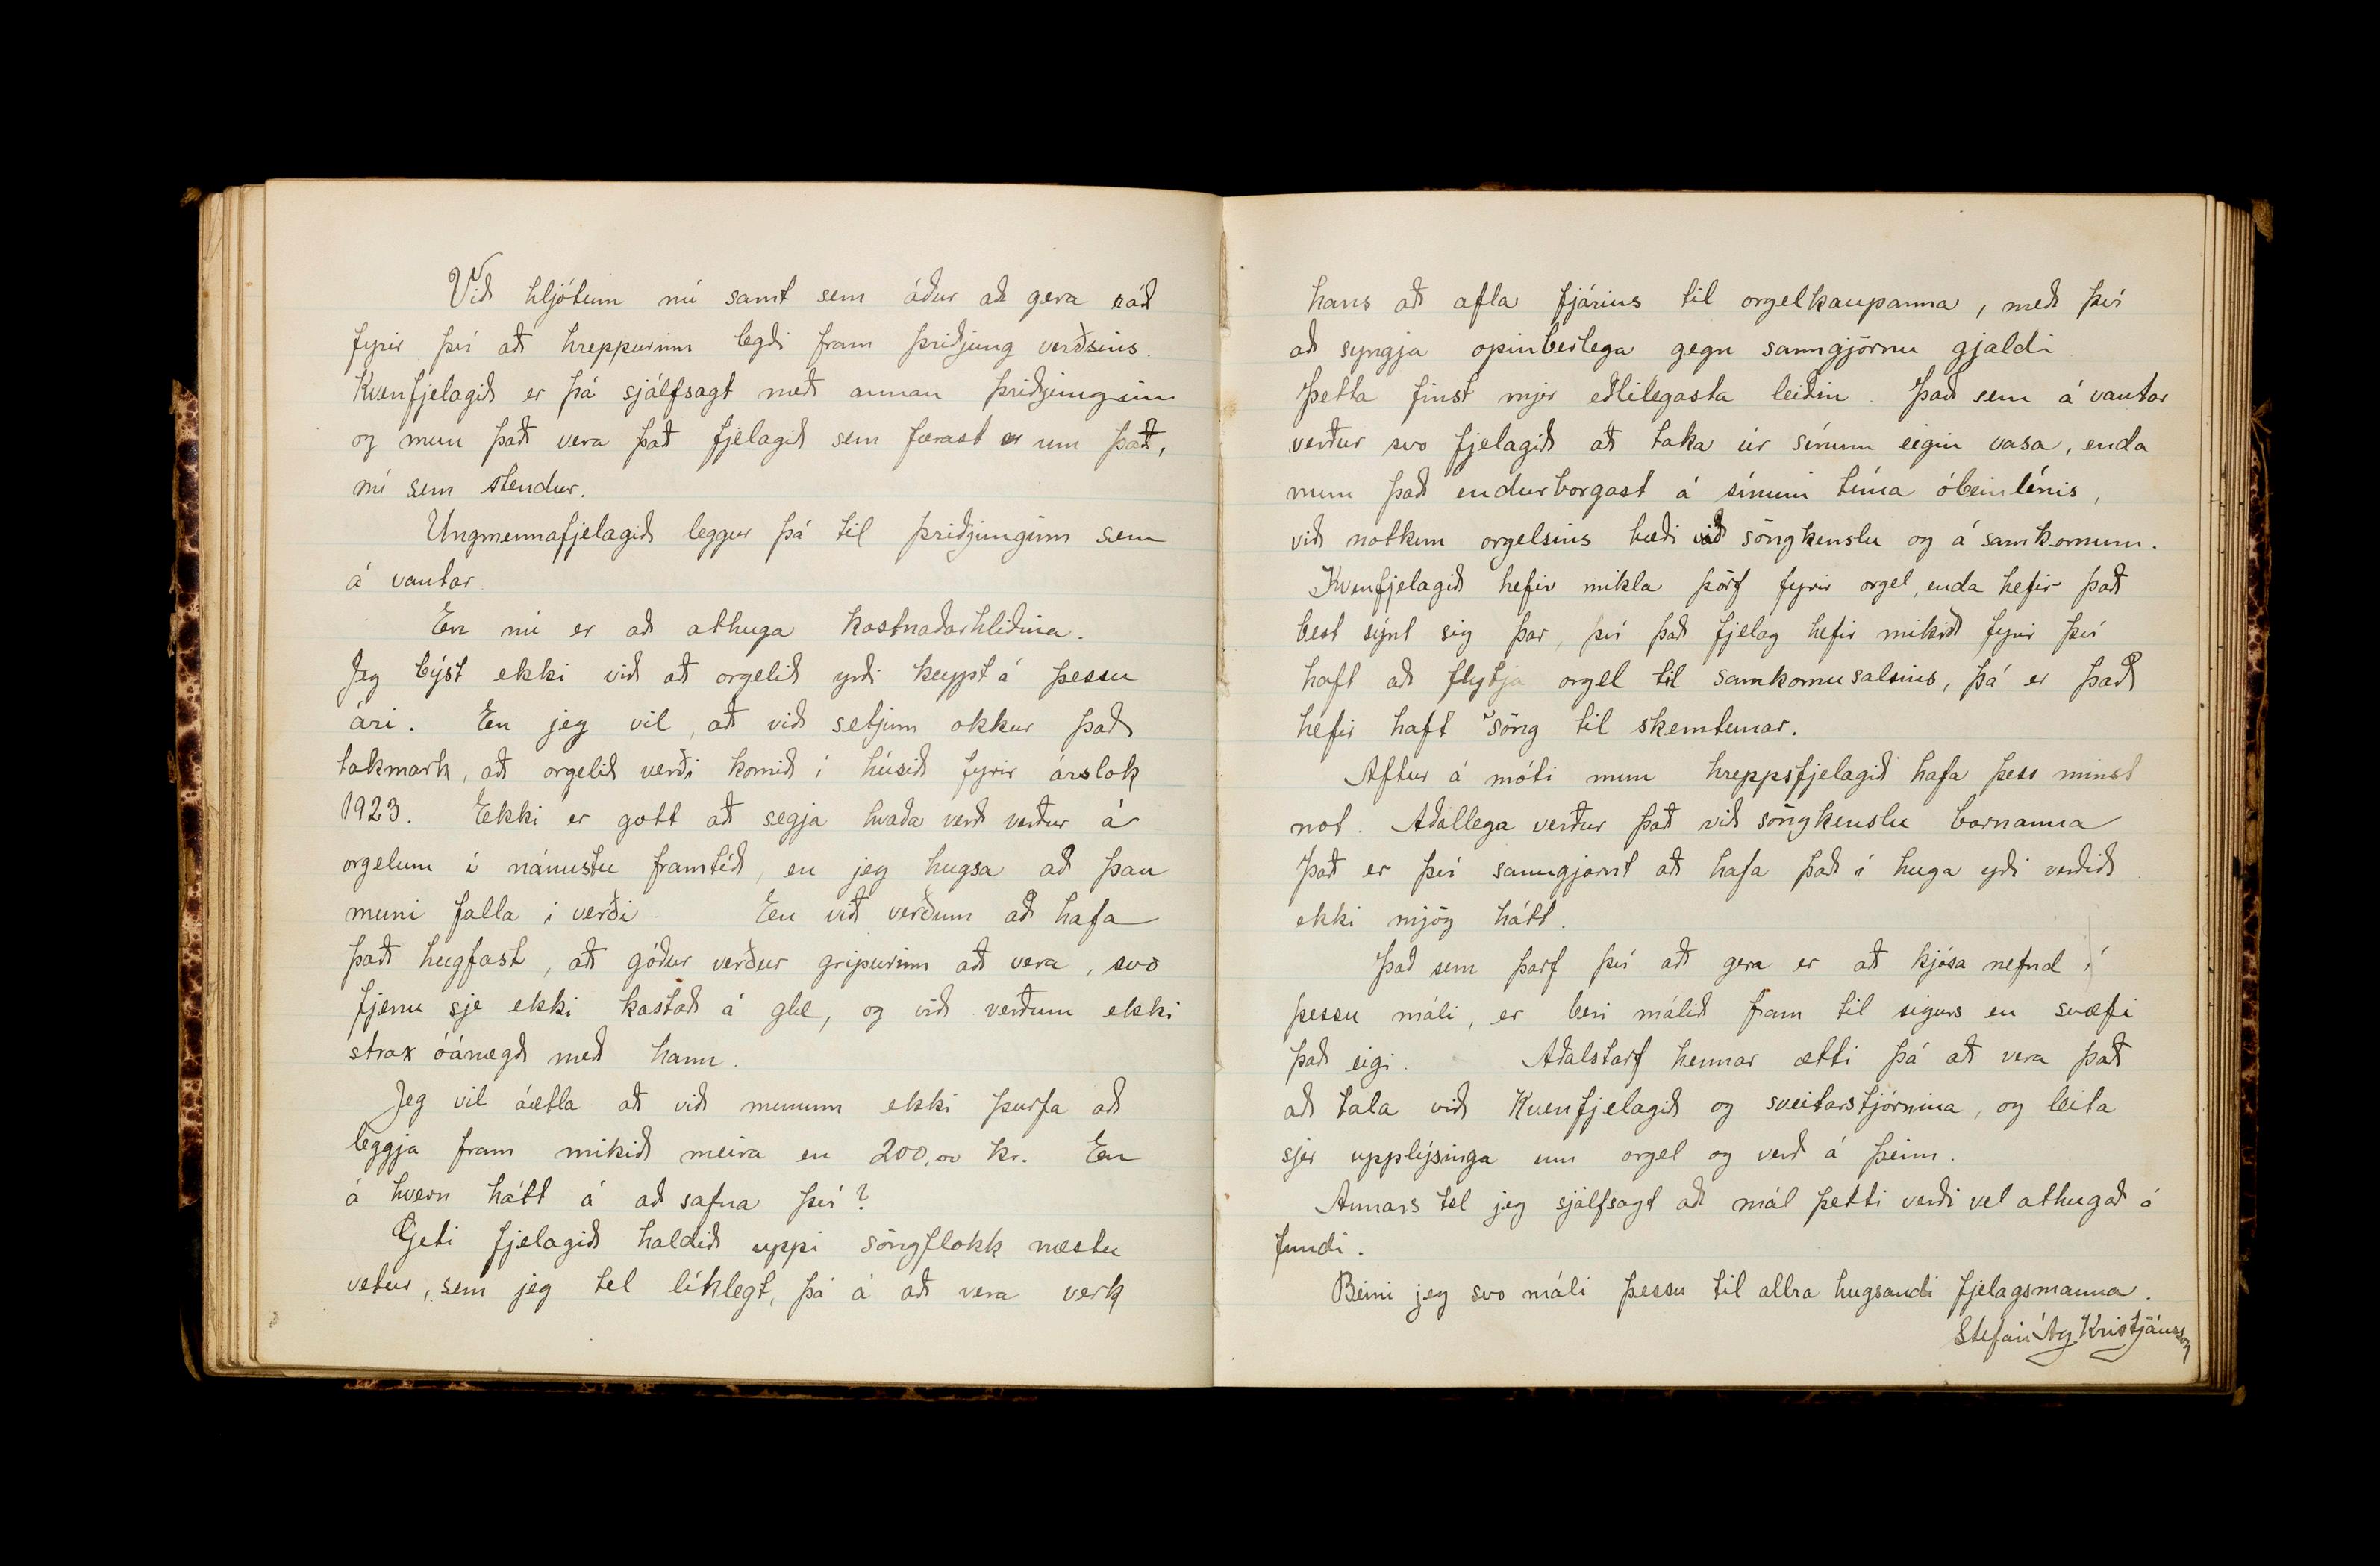 Við hljótum nú samt sem áður að gera ráð
fyrir því að hreppurinn legði fram þriðjung verðsins.
Kvenfjelagið er þá sjálfsagt með annan þriðjunginn
og mun það vera það fjelagið sem færast er um það,
nú sem stendur.
Ungmennafjelagið leggur þá til þriðjunginn sem
á vantar
En nú er að athuga kostnaðarhliðina.
Jeg býst ekki við að orgelið yrði keypt á þessu
ári. En jeg vil, að við setjum okkur það
takmark, að orgelið verði komið í húsið fyrir árslok
1923. Ekki er gott að segja hvaða verð verður á
orgelum í nánustu framtíð, en jeg hugsa að þau
muni falla í verði. En við verðum að hafa
það hugfast, að góður verður gripurinn að vera, svo
fjenu sje ekki kastað á glæ, og við verðum ekki
strax óánægð með hann.
Jeg vil áætla að við munum ekki þurfa að
leggja fram mikið meira en 200,00 kr. En
á hvern hátt á að safna því?
Geti fjelagið haldið uppi söngflokk næstu
vetur, sem jeg tel líklegt, þá á að vera verk
hans að afla fjárins til orgelkaupanna, með því
að syngja opinberlega gegn sanngjörnu gjaldi
Þetta finst mjer eðlilegasta leiðin. Það sem á vantar
verður svo fjelagið að taka úr sínum eigin vasa, enda
mun það endurborgast á sínum tíma óbeinlínis,
við notkun orgelsins bæði við söngkenslu og á samkomum.
Kvenfjelagið hefir mikla þörf fyrir orgel, enda hefir það
best sýnt sig þar, því það fjelag hefir mikið fyrir því
haft að flytja orgel til samkomusalsins, þá er það
hefir haft söng til skemtunar.
Aftur á móti mun hreppsfjelagið hafa þess minst
not. Aðallega verður það við söngkenslu barnanna
Það er því sanngjarnt að hafa það í huga yrði verðið
ekki mjög hátt.
Það sem þarf því að gera er að kjósa nefnd í
þessu máli, er beri málið fram til sigurs en svæfi
það eigi. Aðalstarf hennar ætti þá að vera það
að tala við Kvenfjelagið og sveitarstjórnina, og leita
sjer upplýsinga um orgel og verð á þeim.
Annars tel jeg sjálfsagt að mál þetti verði vel athugað á
fundi.
Beini jeg svo máli þessu til allra hugsandi fjelagsmanna.
Stefán Ag Kristjánsson